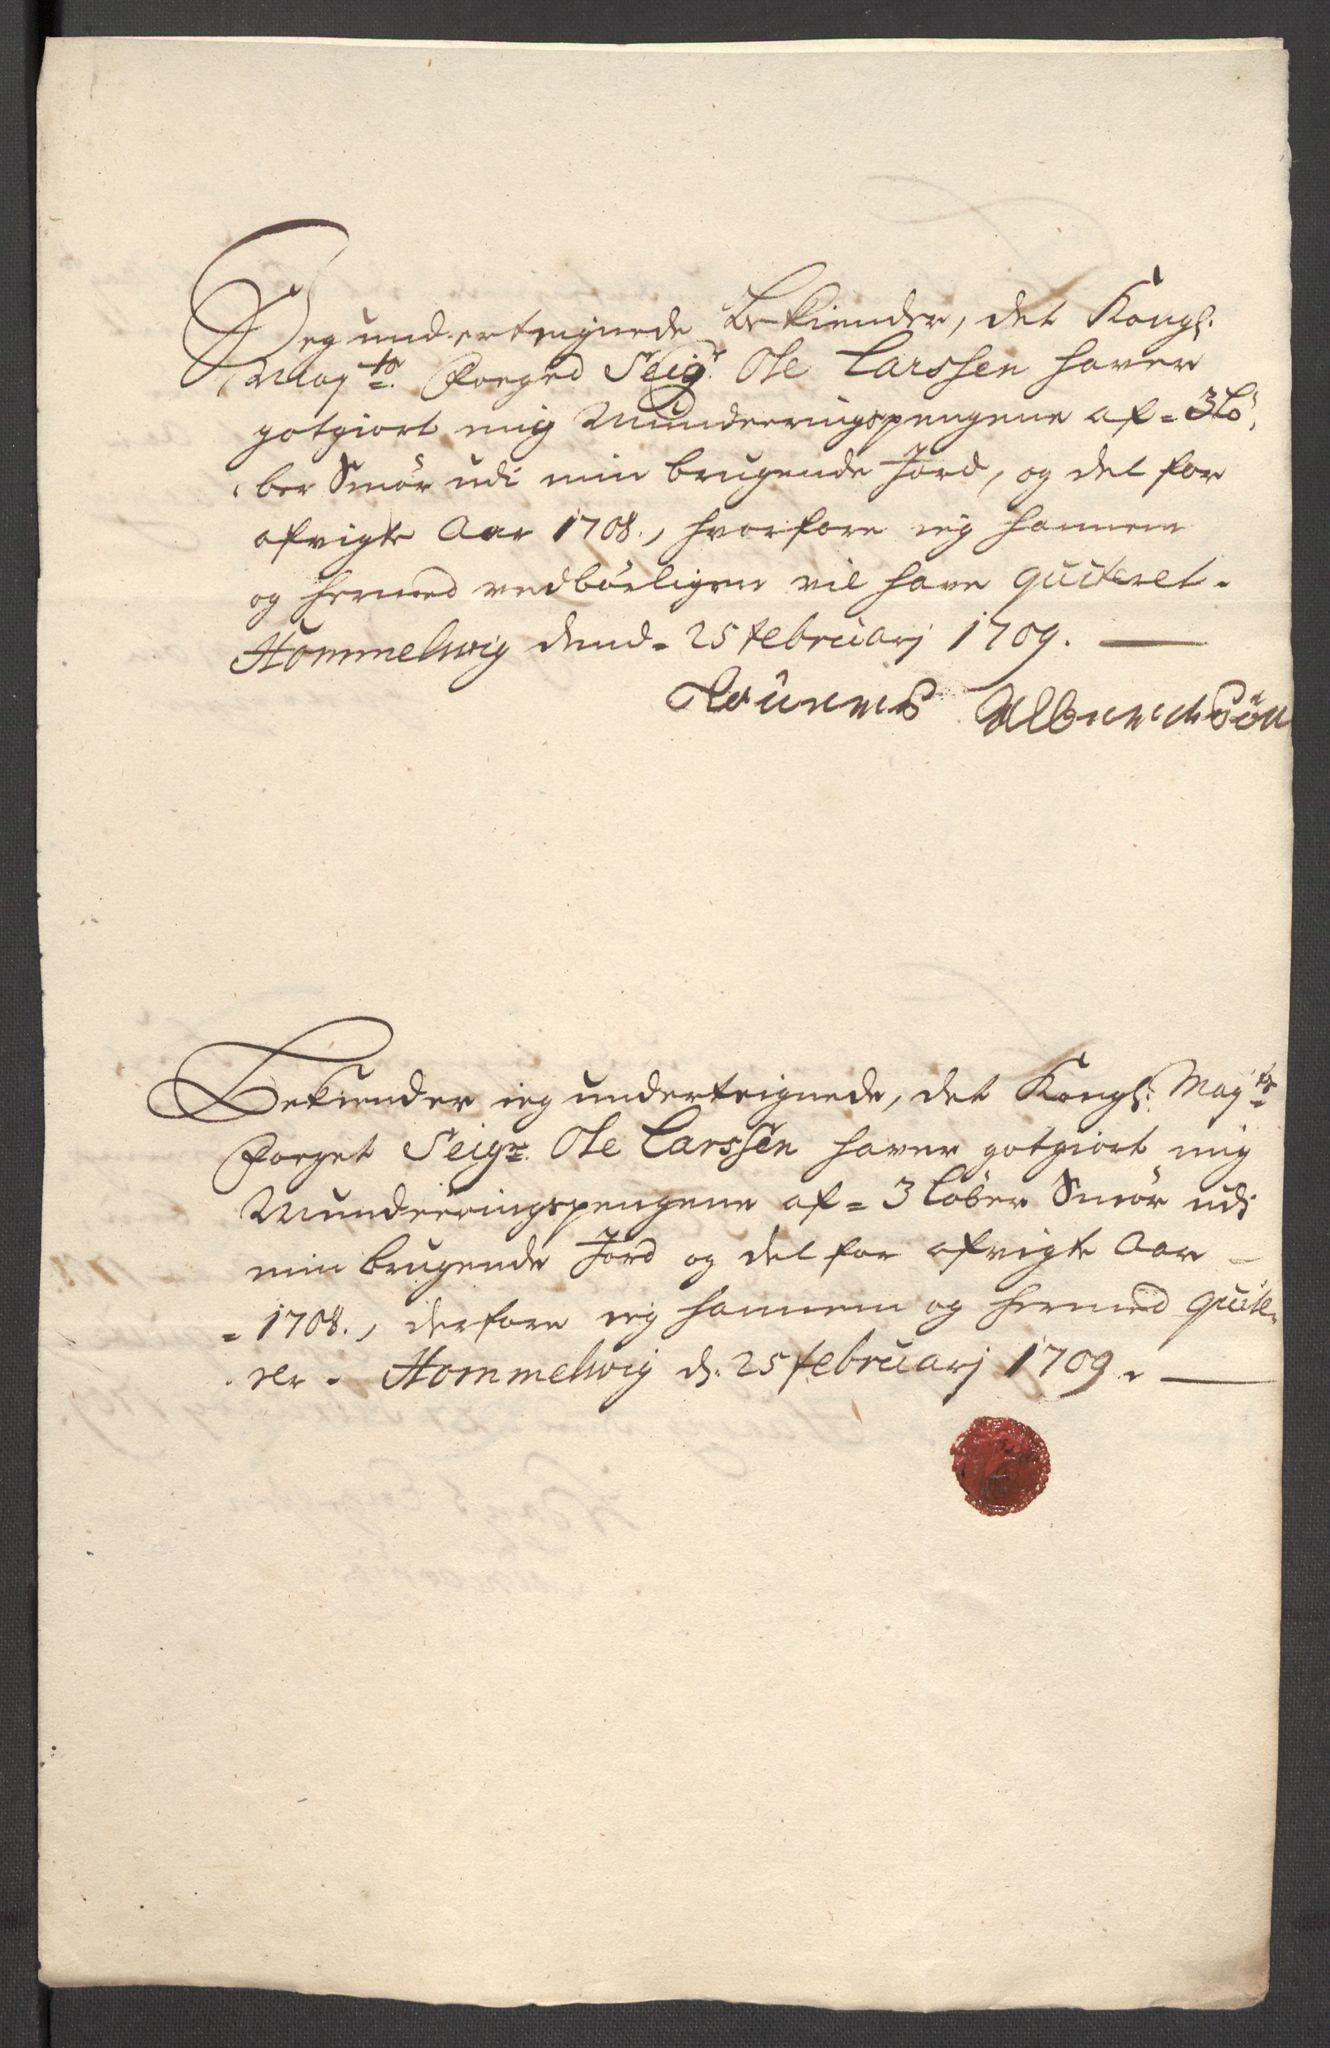 Jeg underteignede Bekiender, det Kongl:
Mayts. Foeged Seigr. Ole Larssen haver
gotgiort mig Munderingspengene af = 3 Lö¸
¸ber Smör udi min brugende Jord, og det for
afvigte Aar 1708., hvorfore ieg hannem
og hermed vedbörligen vil have quiteret.
Hommelwig dend. 25 februarj 1709.
Bekiender ieg underteignede, det Kongl: Mayts
Foeget Seigr. Ole Larssen haver gotgiort mig
Munderingspengene af = 3 Löber Smör udi
min brugende Jord og det for afvigte Aar
= 1708., derfore ieg hannem og hermed quite¸
rer. Hommelwig d: 25 februarj 1709.